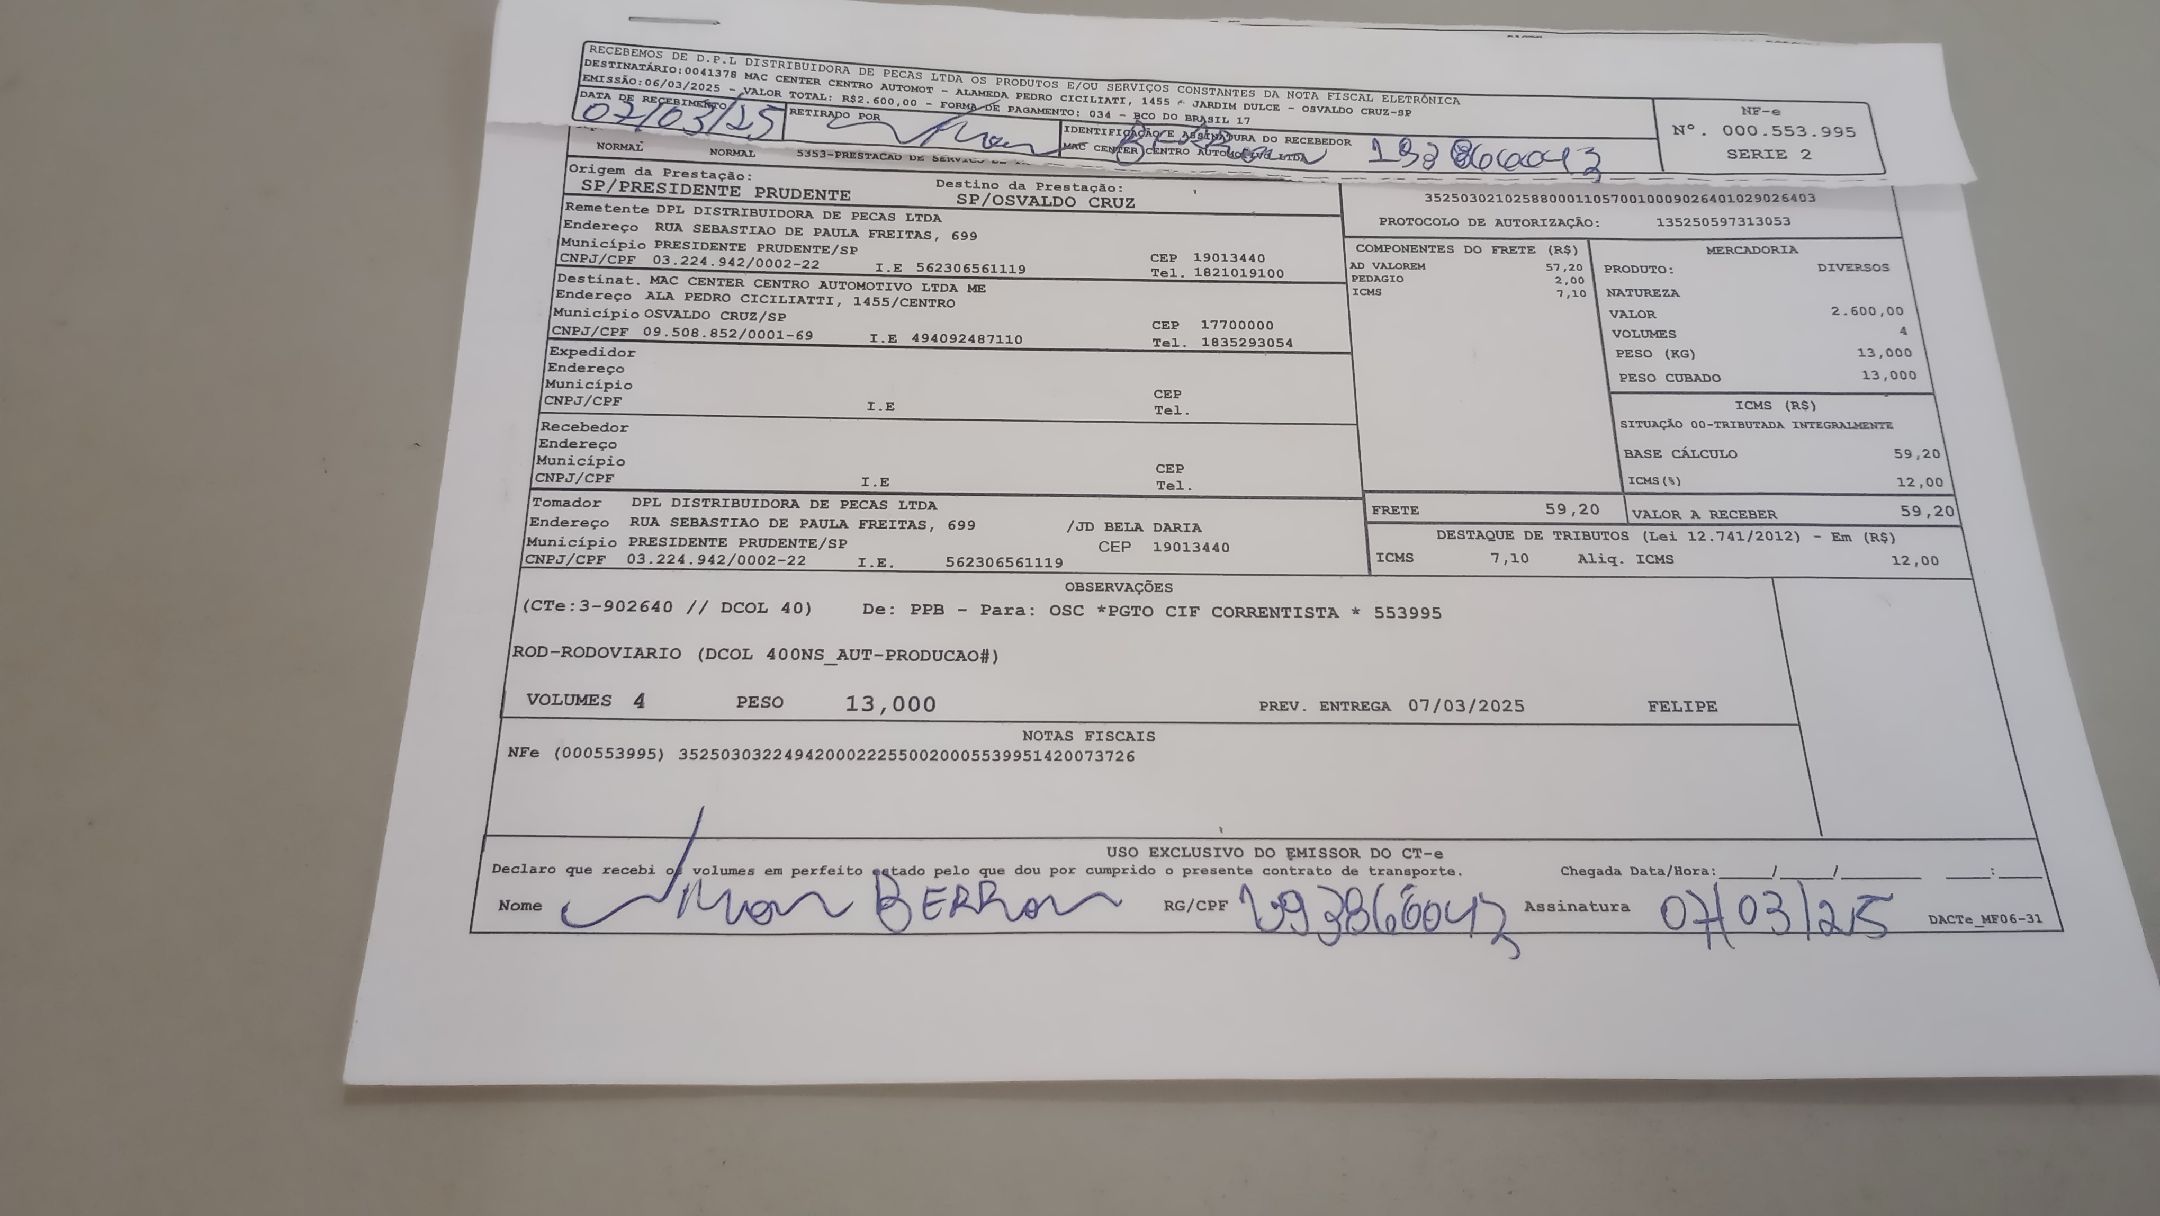 RECEBEMOS DE D.P.L DISTRIBUIDORA DE PECAS LTDA OS PRODUTOS E/OU SERVIÇOS CONSTANTES DA NOTA FISCAL ELETRÔNICA
DESTINATÁRIO:0041378 MAC CENTER CENTRO AUTOMOT - ALAMEDA PEDRO CICILIATI, 1455 - JARDIM DULCE - OSVALDO CRUZ-SP
EMISSÃO:06/03/2025 - VALOR TOTAL: R$2.600,00 - FORMA DE PAGAMENTO: 034 - BCO DO BRASIL 17
NF-e
Nº. 000.553.995
SERIE 2
DATA DE RECEBIMENTO
07/03/25
RETIRADO POR
IDENTIFICAÇÃO E ASSINATURA DO RECEBEDOR
MAC CENTER CENTRO AUTOMOTIVO LTDA
NORMAL NORMAL 5353-PRESTACAO DE SERVICO DE
Origem da Prestação: Destino da Prestação:
SP/PRESIDENTE PRUDENTE SP/OSVALDO CRUZ
Remetente DPL DISTRIBUIDORA DE PECAS LTDA
Endereço RUA SEBASTIAO DE PAULA FREITAS, 699
Município PRESIDENTE PRUDENTE/SP CEP 19013440
CNPJ/CPF 03.224.942/0002-22 I.E 562306561119 Tel. 1821019100
Destinat. MAC CENTER CENTRO AUTOMOTIVO LTDA ME
Endereço ALA PEDRO CICILIATTI, 1455/CENTRO
Município OSVALDO CRUZ/SP CEP 17700000
CNPJ/CPF 09.508.852/0001-69 I.E 494092487110 Tel. 1835293054
Expedidor
Endereço
Município CEP
CNPJ/CPF I.E Tel.
Recebedor
Endereço
Município CEP
CNPJ/CPF I.E Tel.
Tomador DPL DISTRIBUIDORA DE PECAS LTDA
Endereço RUA SEBASTIAO DE PAULA FREITAS, 699 /JD BELA DARIA
Município PRESIDENTE PRUDENTE/SP CEP 19013440
CNPJ/CPF 03.224.942/0002-22 I.E. 562306561119
35250302102588000110570010009026401029026403
PROTOCOLO DE AUTORIZAÇÃO: 135250597313053
COMPONENTES DO FRETE (R$)
AD VALOREM 57,20
PEDAGIO 2,00
ICMS 7,10
MERCADORIA
PRODUTO: DIVERSOS
NATUREZA
VALOR 2.600,00
VOLUMES 4
PESO (KG) 13,000
PESO CUBADO 13,000
ICMS (R$)
SITUAÇÃO 00-TRIBUTADA INTEGRALMENTE
BASE CÁLCULO 59,20
ICMS(%) 12,00
FRETE 59,20 VALOR A RECEBER 59,20
DESTAQUE DE TRIBUTOS (Lei 12.741/2012) - Em (R$)
ICMS 7,10 Aliq. ICMS 12,00
OBSERVAÇÕES
(CTe:3-902640 // DCOL 40) De: PPB - Para: OSC *PGTO CIF CORRENTISTA * 553995
ROD-RODOVIARIO (DCOL 400NS_AUT-PRODUCAO#)
VOLUMES 4 PESO 13,000 PREV. ENTREGA 07/03/2025 FELIPE
NOTAS FISCAIS
NFe (000553995) 35250303224942000222550020005539951420073726
USO EXCLUSIVO DO EMISSOR DO CT-e
Declaro que recebi os volumes em perfeito estado pelo que dou por cumprido o presente contrato de transporte. Chegada Data/Hora:_____/_____/_______ ____:____
Nome RG/CPF Assinatura 07/03/25 DACTe_MF06-31